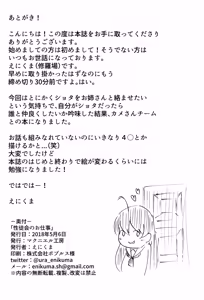 あとがき！
こんにちは！この度は本誌をお手に取ってくださり
ありがとうございます。
始めましての方は初めまして！そうでない方は
いつもお世話になっております。
えにくま(修羅場)です。
早めに取り掛かったはずなのにもう
締め切り30分前ですよ。はい。
今回はとにかくショタをお姉さんと絡ませたい
という気持ちで、自分がショタだったら
誰と仲良くしたいか吟味した結果、カメさんチーム
との本になりました。
お話も組みなれていないのにいきなり４〇とか
描けるかと…(笑)
大変でしたけど
本誌のはじめと終わりで絵が変わるくらいには
勉強になりました！
ではではー！
えにくま
－奥付－
「性徒会のお仕事」
発行日：2018年5月6日
発行：マクニエル工房
発行者：えにくま
印刷：株式会社ポプルス様
twitter：@ura_enikuma
メール：enikuma.sh@gmail.com
※内容の無断転載、複製、改変は禁止